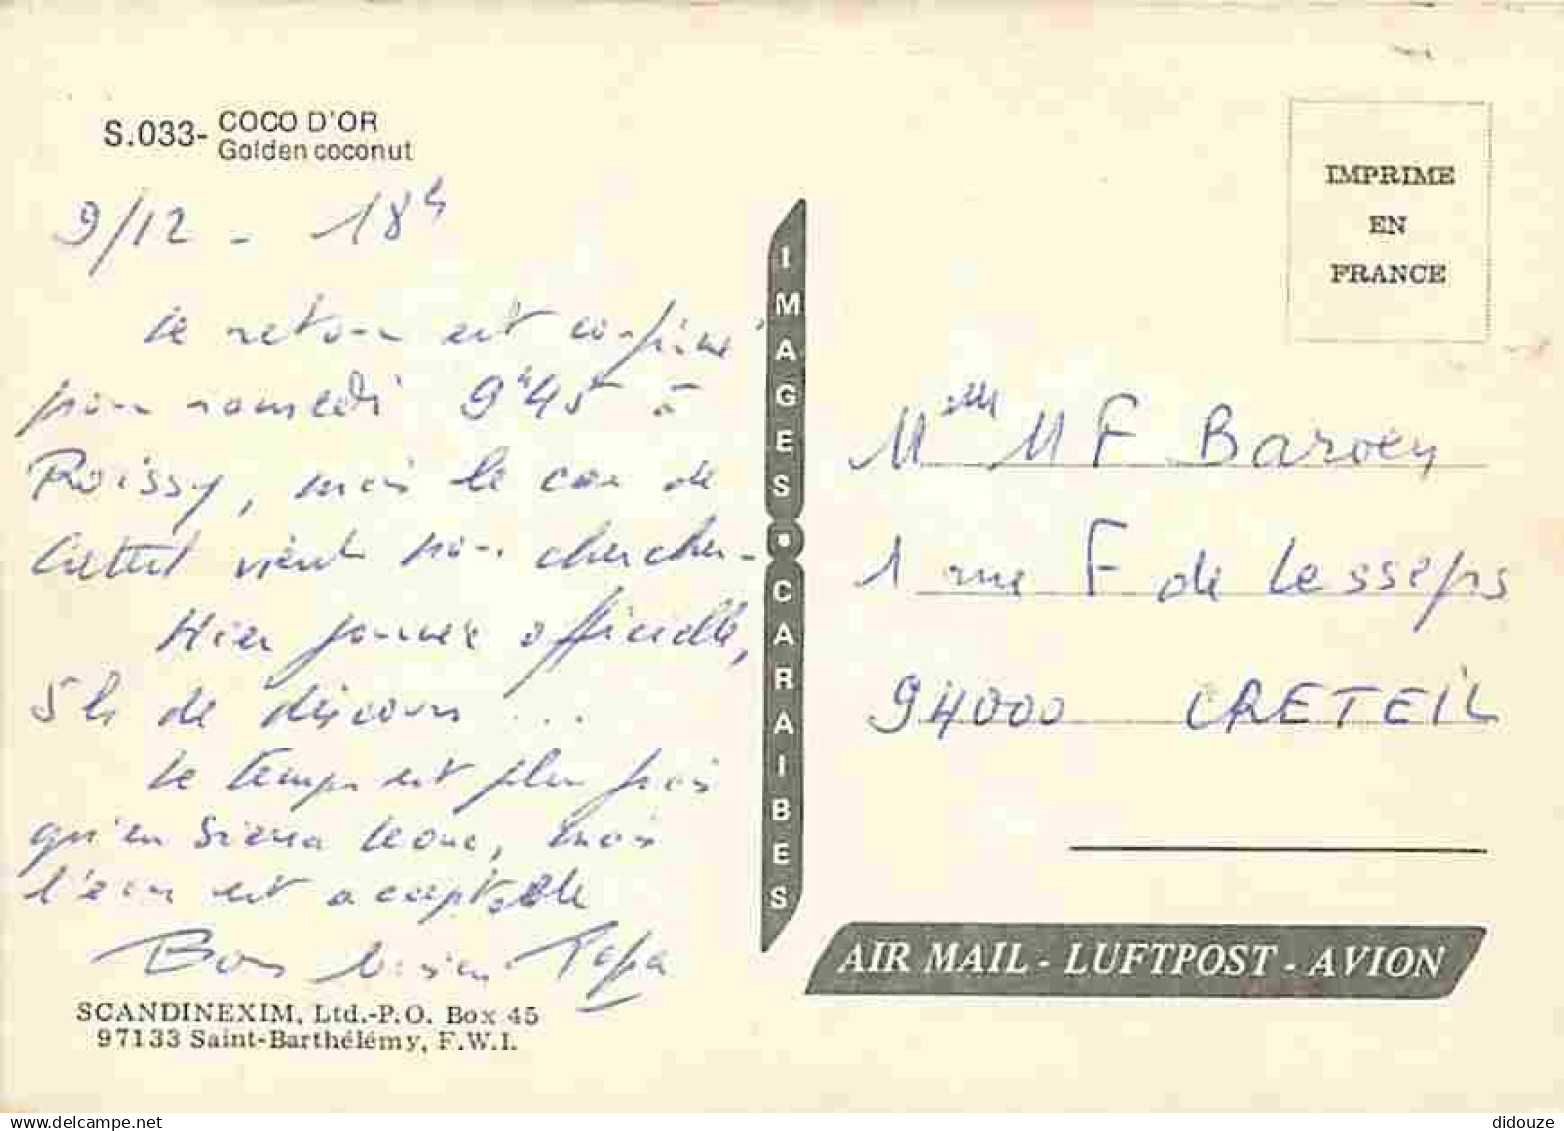 S.033- COCO D'OR
Golden coconut
9/12 - 18h
Le retour est confirmé
pour samedi 9h45 à
Roissy, mais le car de
Créteil vient nous chercher -
Hier journée officielle,
5h de discours ...
Le temps est plus frais
qu'en Sierra Leone, mais
l'eau est acceptable
Bons baisers Papa
SCANDINEXIM, Ltd.-P.O. Box 45
97133 Saint-Barthélémy, F.W.I.
IMAGES • CARAIBES
IMPRIME
EN
FRANCE
Melle MF Barvey
1 rue F de Lesseps
94000 CRETEIL
AIR MAIL - LUFTPOST - AVION
didouze